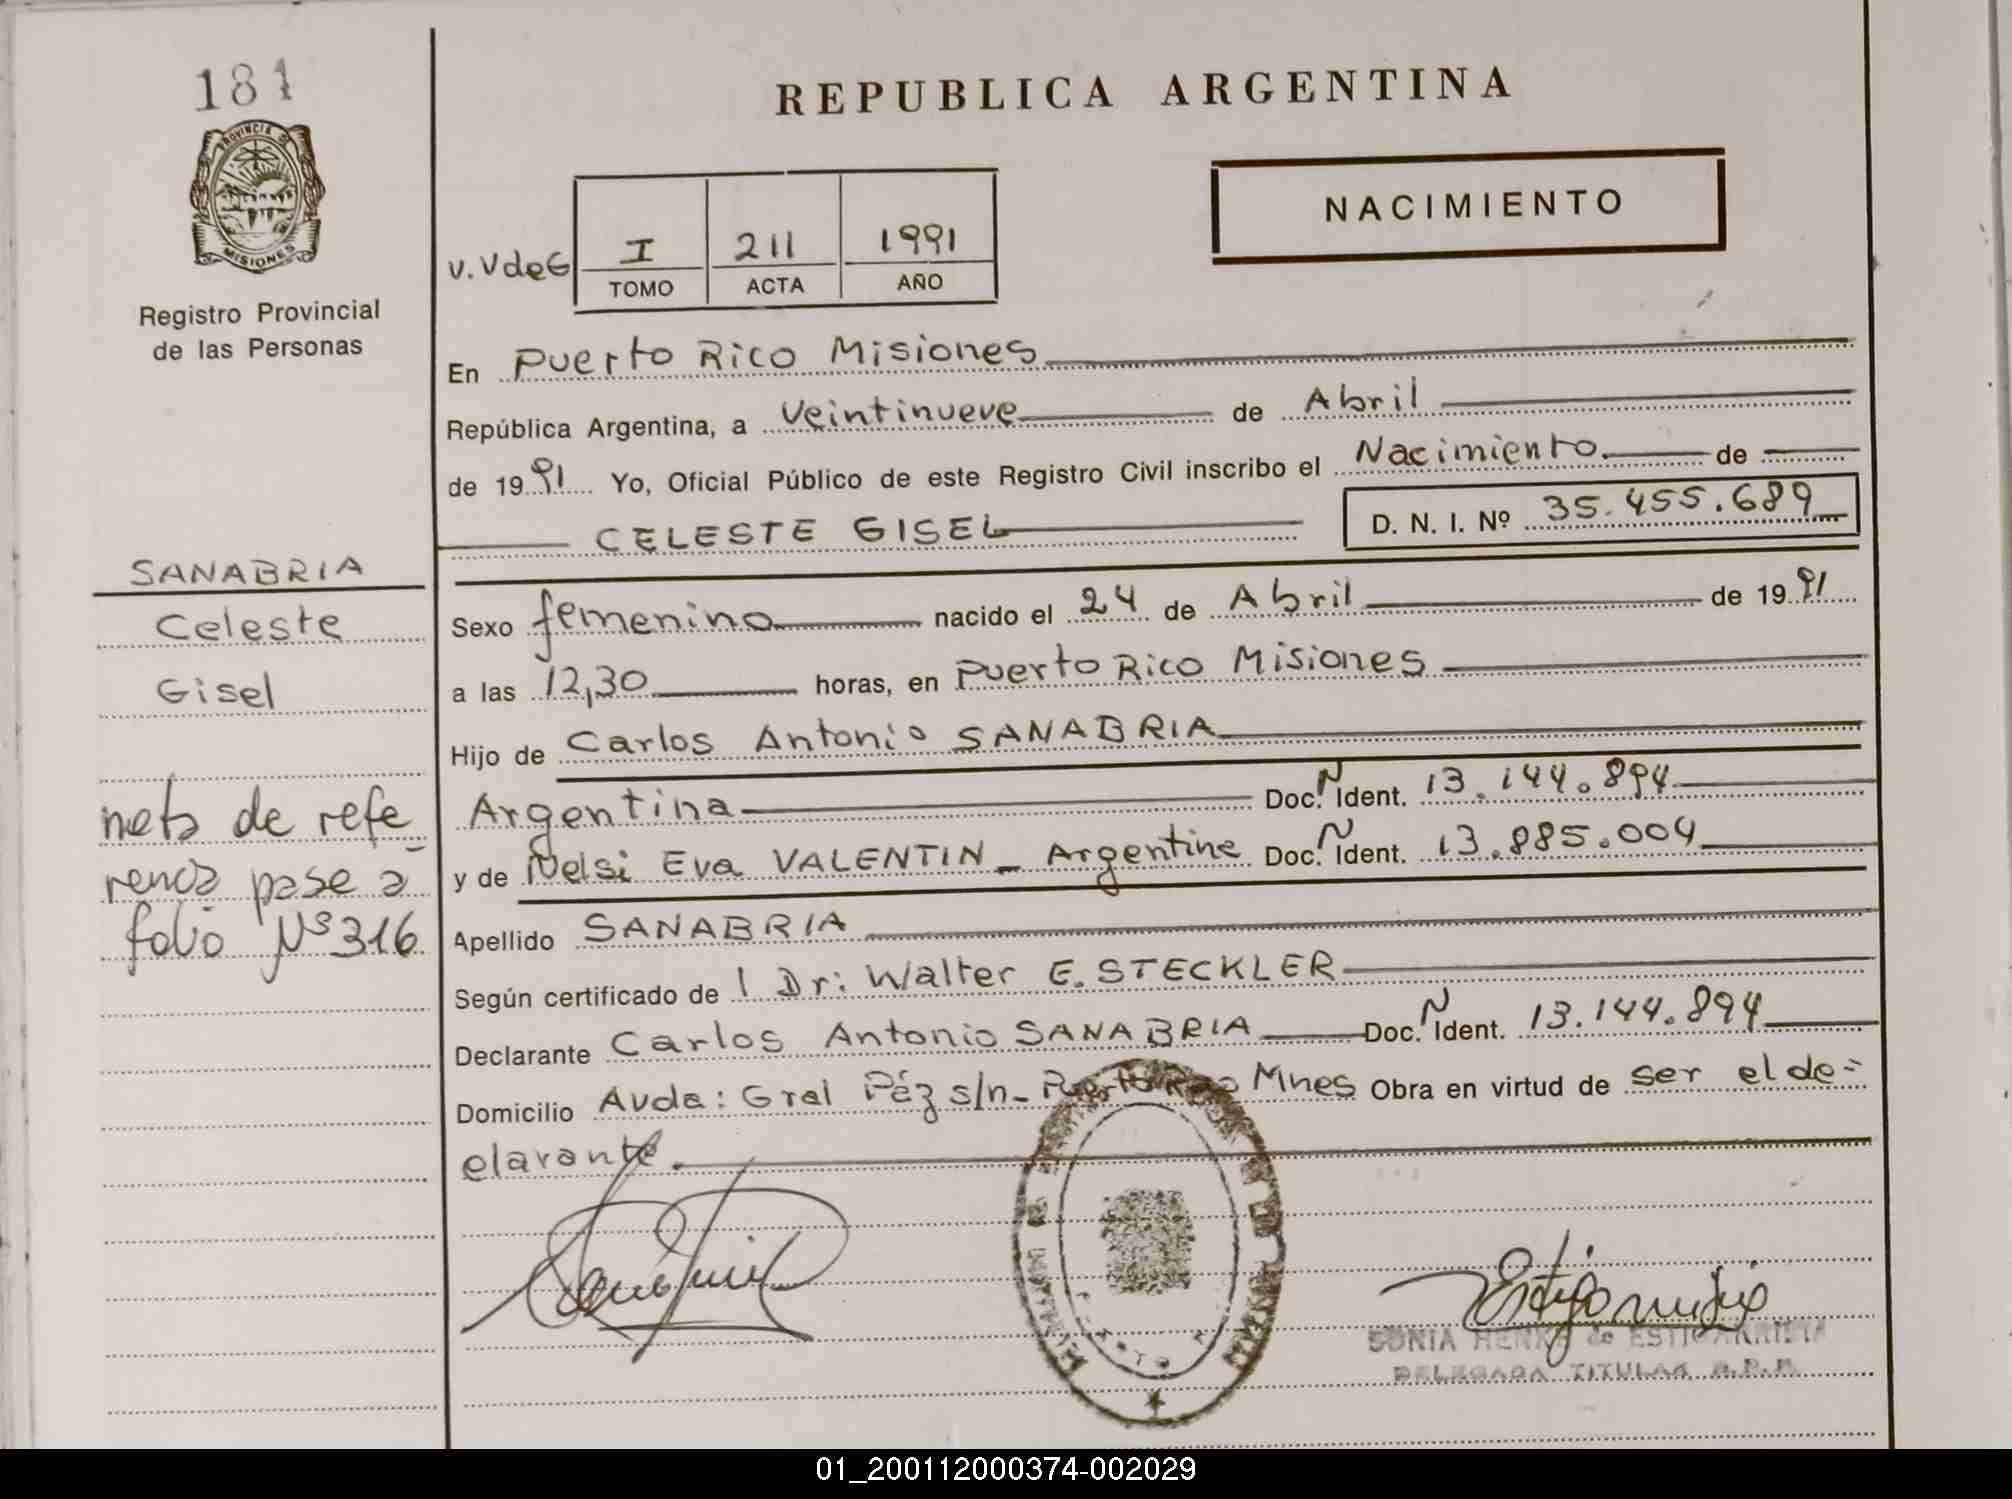 181
PROVINCIA DE
MISIONES
Registro Provincial
de las Personas
SANABRIA
Celeste
Gisel
nota de refe
rencia pase a
folio Nº 316
REPUBLICA ARGENTINA
NACIMIENTO
V. V de G
I 211 1991
TOMO ACTA AÑO
En Puerto Rico Misiones
República Argentina, a Veintinueve de Abril
de 1991 Yo, Oficial Público de este Registro Civil inscribo el Nacimiento de
CELESTE GISEL D. N. I. Nº 35.455.689
Sexo femenino nacido el 24 de Abril de 1991
a las 12,30 horas, en Puerto Rico Misiones
Hijo de Carlos Antonio SANABRIA
Argentina Doc. Ñ Ident. 13.144.894
y de Nelsi Eva VALENTIN - Argentine Doc. Ñ Ident. 13.885.004
Apellido SANABRIA
Según certificado de l Dr: Walter E. STECKLER
Declarante Carlos Antonio SANABRIA Doc. Ñ Ident. 13.144.894
Domicilio Avda: Gral Páz s/n - Puerto Rico Mnes Obra en virtud de ser el de=
clarante
SONIA HENKE de ESTIGARRIBIA
DELEGADA TITULAR R.P.P.
01_200112000374-002029